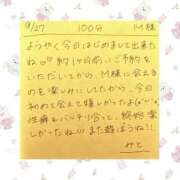 9/27 100分 M様
ようやく今日はじめまして出来た
ね。♡ 約1ヶ月前に ご予約を
いただいてから、M様に会える
のを楽しみにしてたから、今日
初めて会えて嬉しかったよ(*´˘`*)
性癖もバッチリ合って、終始楽
しかったね!!! また遊ぼうね!!
みと